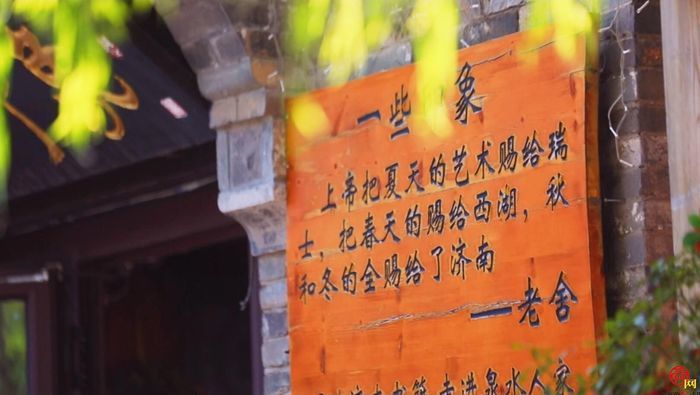 一些 象
上帝把夏天的艺术赐给瑞
士，把春天的赐给西湖，秋
和冬的全赐给了济南
—老舍
走进泉水人家
网